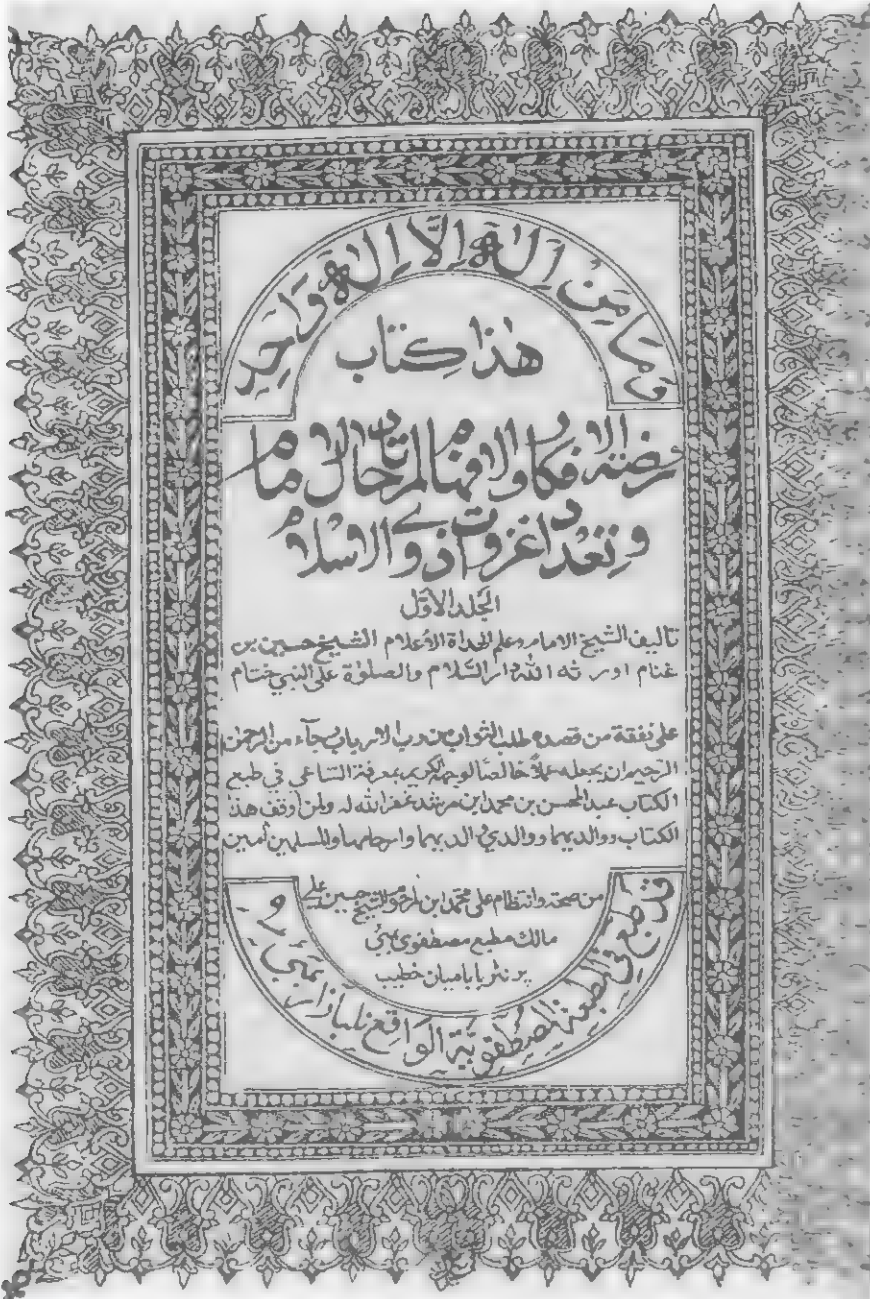 وَمَا مِنْ اِلٰهٍ اِلَّا اِلٰهٌ وَاحِدٌ
هٰذا كِتاب
روضة الافكار والافهام لمرتاد حال الامام
وتعداد غزوات ذوي الاسلام
الجلد الاوّل
تاليف الشيخ الامام وعلم الهداة الاعلام الشيخ حسين بن
غنام اورثه الله دار السّلام والصلوٰة على النبي ختام
على نفقة من قصده طلب الثواب من رب الارباب رجآء من الرحمٰن
الرحيم ان يجعله عملاً خالصًا لوجهه الكريم بمعرفة السّاعى في طبع
الكتاب عبد المحسن بن محمد ابن مرشد غفر الله له ولمن اوقف هذ
الكتاب ووالديهما ووالدي والديهما وارحامهما والمسلمين اٰمين
من صحة وانتظام على محمّد ابن المرحوم الشيخ حسين على
مالك مطبع مصطفوى بمبئى
پرنٹر بابا ميان خطيب
قد طبع في المطبعة المصطفوية الواقع بازار بمبئى